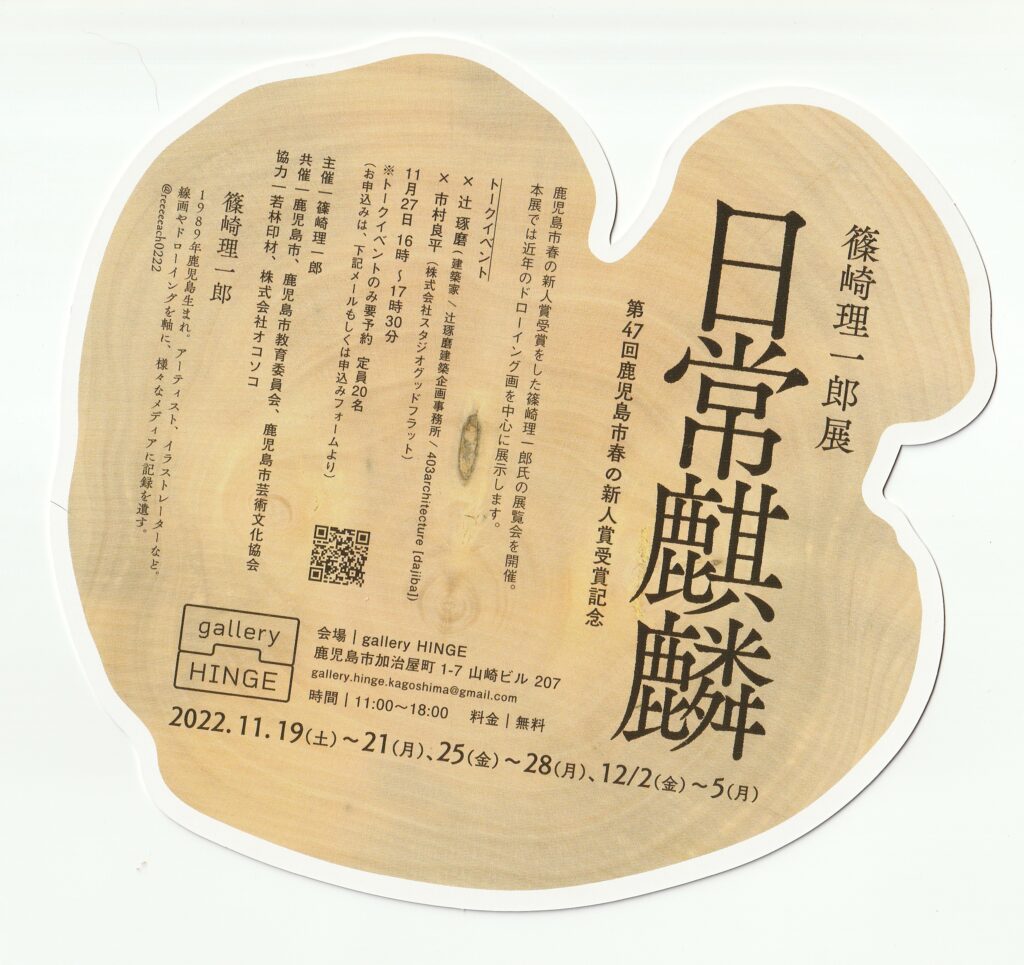 篠崎理一郎展
日常麒麟
第47回鹿児島市春の新人賞受賞記念
鹿児島市春の新人賞受賞をした篠崎理一郎氏の展覧会を開催。
本展では近年のドローイング画を中心に展示します。
トークイベント
× 辻 琢磨(建築家/辻琢磨建築企画事務所/403architecture [dajiba])
× 市村良平(株式会社スタジオグッドフラット)
11月27日 16時〜17時30分
※トークイベントのみ要予約 定員20名
(お申込みは、下記メールもしくは申込みフォームより)
主催|篠崎理一郎
共催|鹿児島市、鹿児島市教育委員会、鹿児島市芸術文化協会
協力|若林印材、株式会社オコソコ
篠崎理一郎
1989年鹿児島生まれ。アーティスト、イラストレーターなど。
線画やドローイングを軸に、様々なメディアに記録を遺す。
@reeeeeach0222
gallery
HINGE
会場|gallery HINGE
鹿児島市加治屋町 1-7 山崎ビル 207
gallery.hinge.kagoshima@gmail.com
時間|11:00〜18:00 料金|無料
2022.11.19(土)〜21(月)、25(金)〜28(月)、12/2(金)〜5(月)